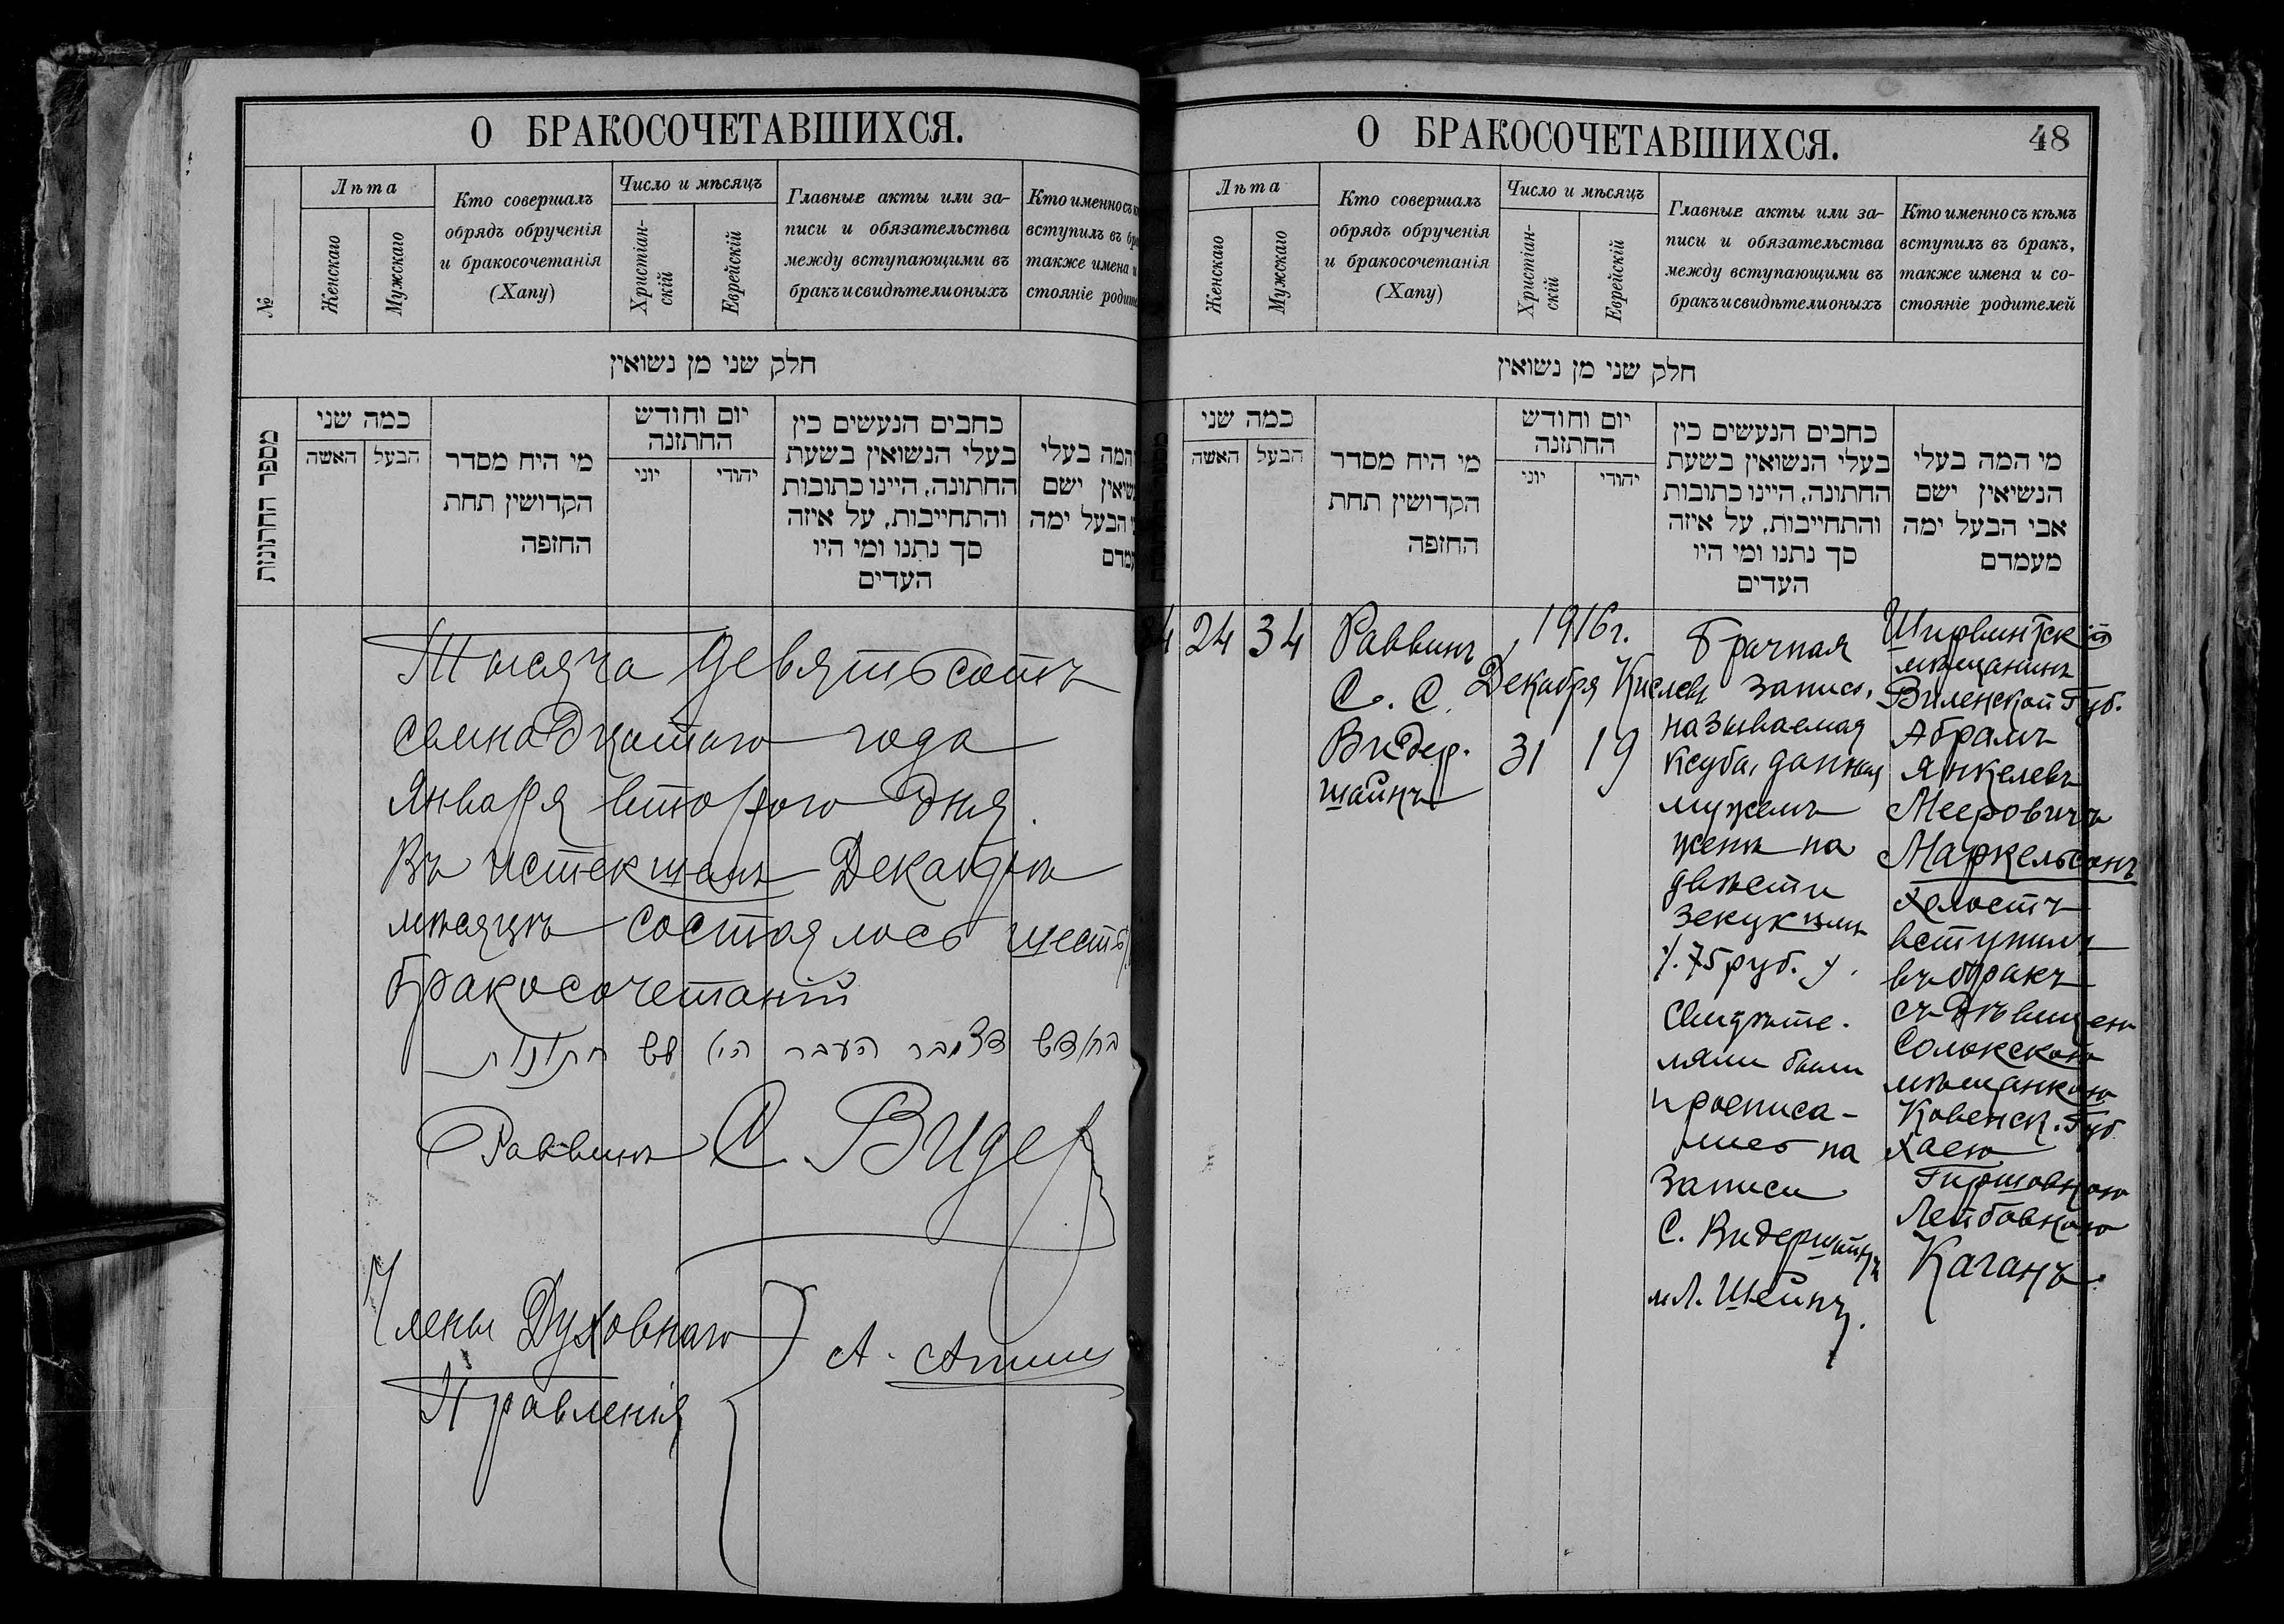 О БРАКОСОЧЕТАВШИХСЯ.
№
Лѣта
Женскаго
Мужскаго
Кто совершалъ
обрядъ обрученія
и бракосочетанія
(Хапу)
Число и мѣсяцъ
Христіан-
скій
Еврейскій
Главные акты или за-
писи и обязательства
между вступающими въ
бракъ и свидѣтели оныхъ
Кто именно съ
вступилъ въ
также имена и
стояніе
חלק שני מן נשואין
מספר החתונות
כמה שני
האשה
הבעל
מי היח מסדר
הקדושין תחת
החופה
יום וחודש
החתונה
יוני
יהודי
כתבים הנעשים בין
בעלי הנשואין בשעת
החתונה, היינו כתובות
והתחייבות, על איזה
סך נתנו ומי היו
העדים
המה בעלי
ישם
הבעל ימה
Тысяча девятьсотъ
семнадцатаго года
Января второго дня.
Въ истекшемъ Декабрѣ
мѣсяцѣ состоялось шесть
бракосочетаній
בחודש דצמבר העבר היו שש חתונות
Раввинъ С. Видер
Члены Духовнаго
Правленія
А.
О БРАКОСОЧЕТАВШИХСЯ.
48
Лѣта
Женскаго
Мужскаго
Кто совершалъ
обрядъ обрученія
и бракосочетанія
(Хапу)
Число и мѣсяцъ
Христіан-
скій
Еврейскій
Главные акты или за-
писи и обязательства
между вступающими въ
бракъ и свидѣтели оныхъ
Кто именно съ кѣмъ
вступилъ въ бракъ,
также имена и со-
стояніе родителей
חלק שני מן נשואין
כמה שני
האשה
הבעל
מי היח מסדר
הקדושין תחת
החופה
יום וחודש
החתונה
יוני
יהודי
כתבים הנעשים בין
בעלי הנשואין בשעת
החתונה, היינו כתובות
והתחייבות, על איזה
סך נתנו ומי היו
העדים
מי המה בעלי
הנשיאין ישם
אבי הבעל ימה
מעמדם
24
34
Раввинъ
С. С.
Видер-
шайнъ
1916г.
Декабря
31
Кислевъ
19
Брачная
запись,
называемая
ксуба, данная
мужемъ
женѣ на
двѣсти
зекукимъ
/. 75 руб. /.
Свидѣте-
лями были
и росписа-
лись на
записи
С. Видершайнъ
и Л. Штейнъ.
Ширвинтскій
мѣщанинъ
Виленской Губ.
Абрамъ
Янкелевъ
Мееровичъ
Маркельсонъ
холостъ
вступилъ
въ бракъ
съ дѣвицею
Солокскою
мѣщанкою
Ковенск. Губ.
Хаею
Гиршовною
Лейбовною
Каганъ.